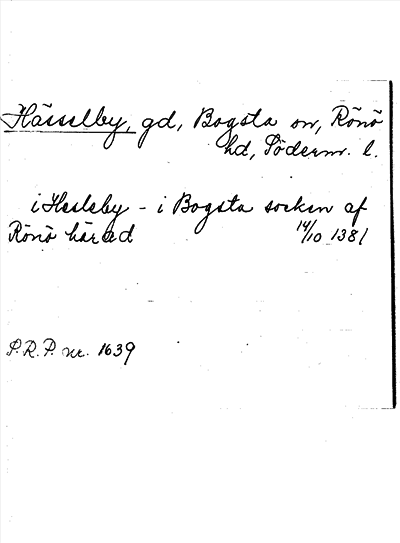 Hässelby, gd, Bogsta sn, Rönö
hd, Söderm. l.
i Hesleby - i Bogsta socken af
Rönö härad 14/10 1381
S.R.P. nr. 1639